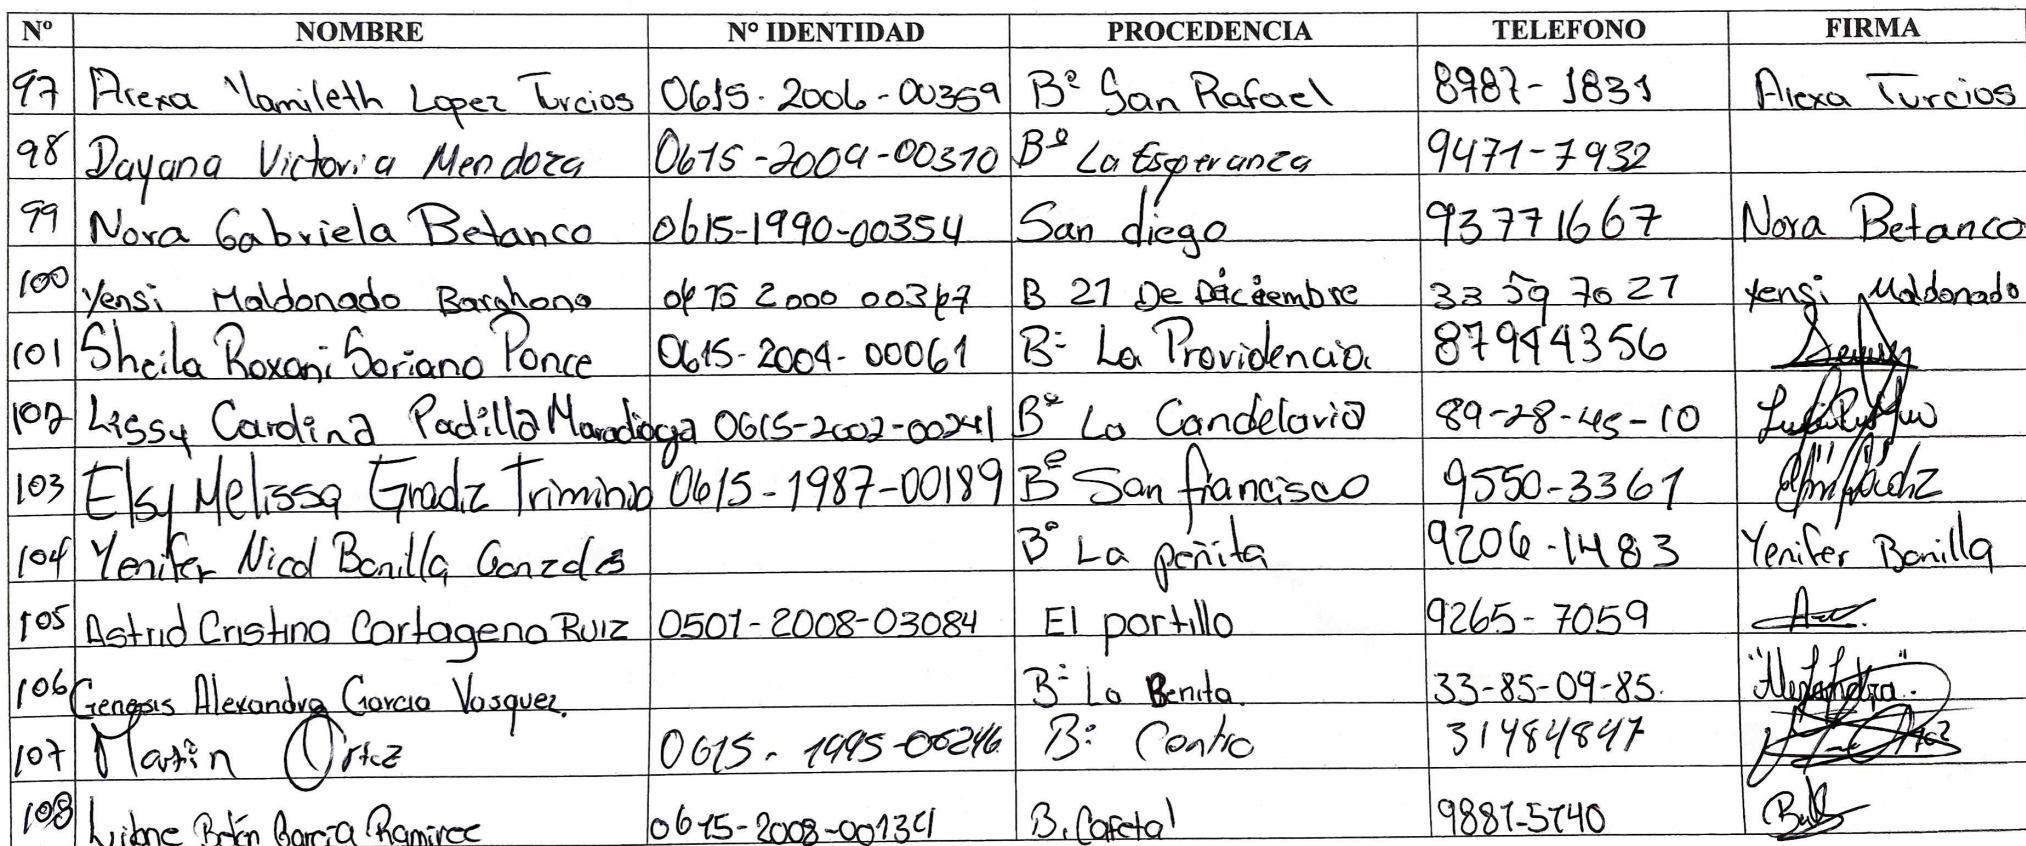 Nº NOMBRE Nº IDENTIDAD PROCEDENCIA TELEFONO FIRMA
97 Alexa Yamileth Lopez Turcios 0615-2006-00359 Bº San Rafael 8987-1831 Alexa Turcios
98 Dayana Victoria Mendoza 0615-2009-00310 Bº La Esperanza 9471-7932
99 Nora Gabriela Betanco 0615-1990-00354 San diego 93771667 Nora Betanco
100 Yensi Maldonado Barahona 2000 B 21 De Diciembre 33 59 70 27 Yensi Maldonado
101 Sheila Roxani Soriano Ponce 0615-2004-00061 Bº La Providencia 87944356
102 Lissy Carolina Padilla Maradiaga 0615-2002-00241 Bº La Candelaria 89-28-45-10
103 Elsy Melissa Gradiz Triminio 0615-1987-00189 Bº San francisco 9550-3361
104 Yenifer Nicol Bonilla Bº La peñita 9206-1483 Yenifer Bonilla
105 Astrid Cristina Cartagena Ruiz 0501-2008-03084 El portillo 9265-7059
106 Genesis Alexandra Garcia Vasquez. Bº La Benita. 33-85-09-85. "Alexandra".
107 Ortez 0615-1995-00246 Bº 31484847
108 Garcia Ramirez 0615-2008-00134 B. Cafetal 9881-5740